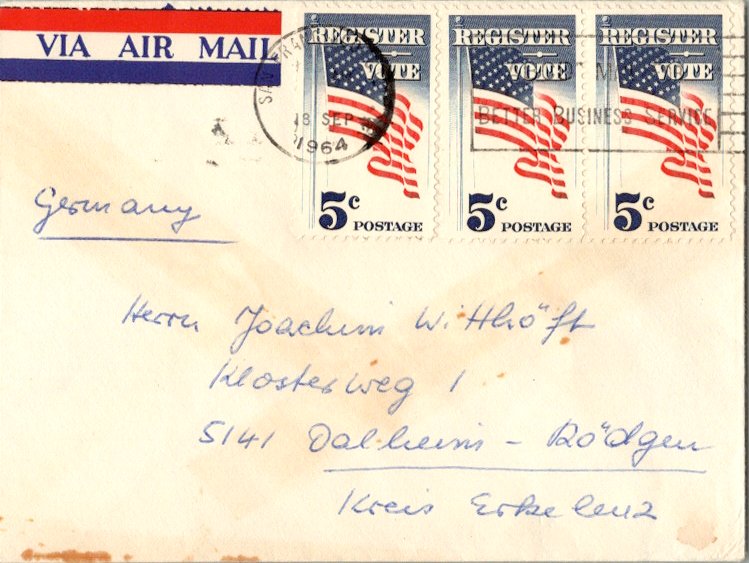 VIA AIR MAIL
REGISTER
VOTE
5c POSTAGE
REGISTER
VOTE
5c POSTAGE
REGISTER
VOTE
5c POSTAGE
SAN FRAN
18 SEP
1964
BETTER BUSINESS SERVICE
Germany
Herrn Joachim Witthöft
Klosterweg 1
5141 Dalheim - Rödgen
Kreis Erkelenz